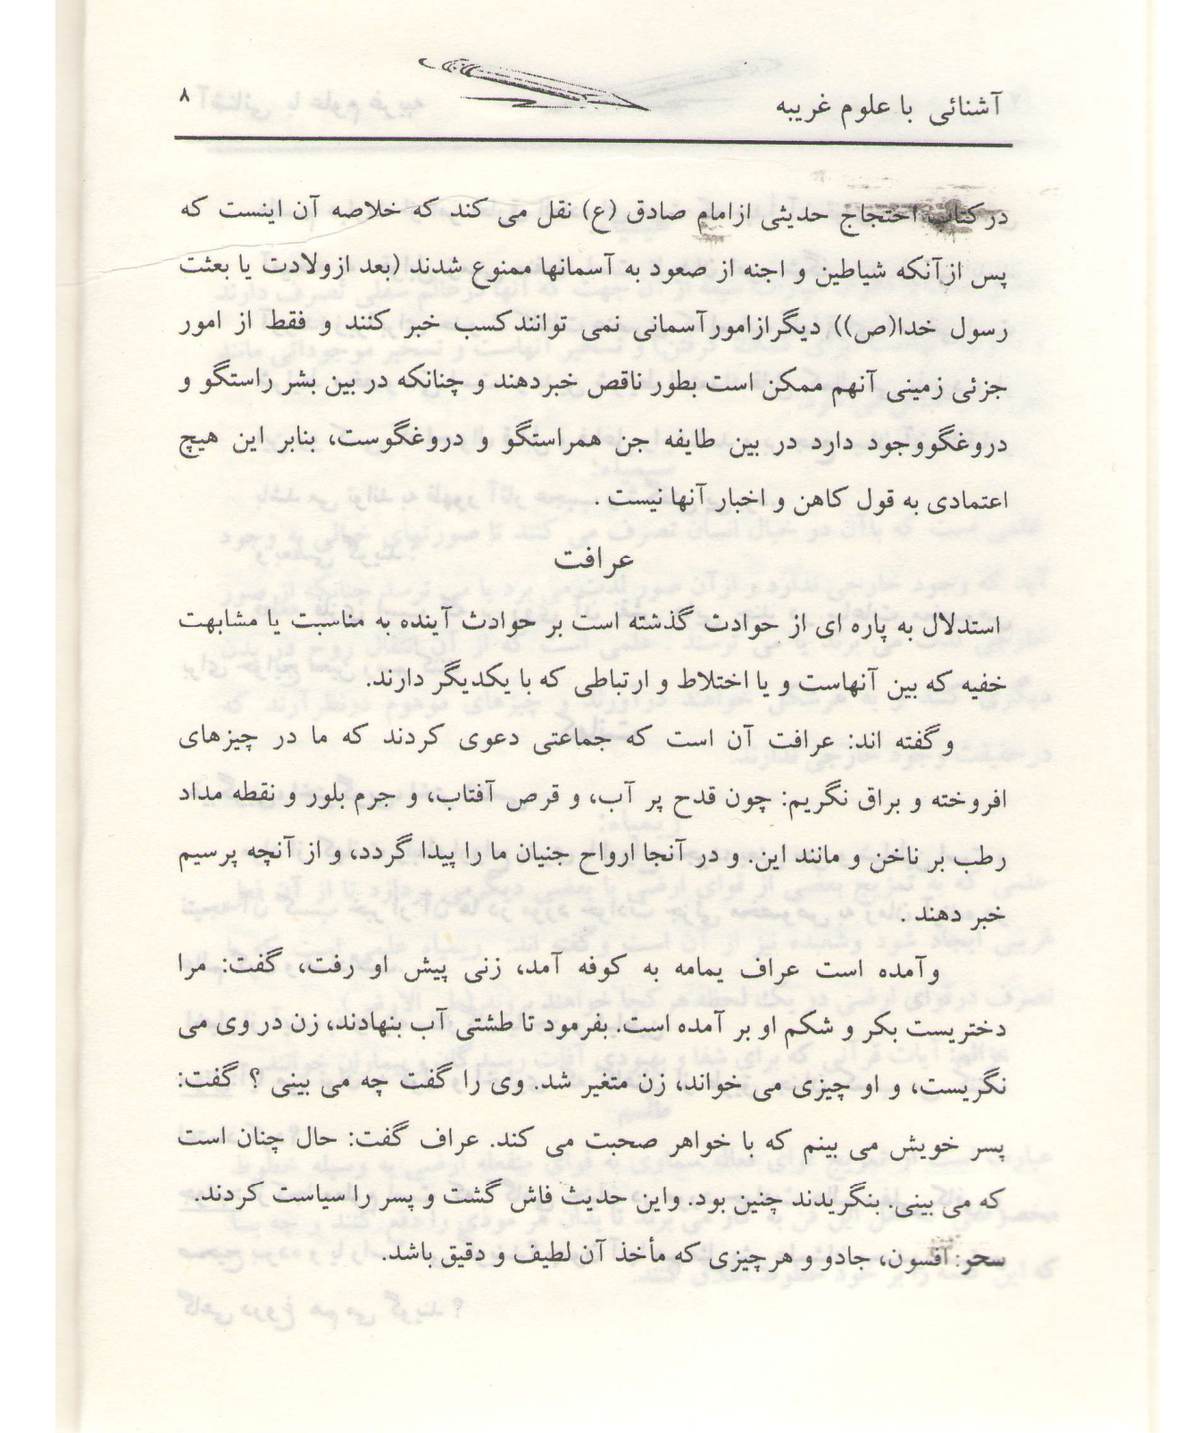 آشنائی با علوم غریبه ۸
در کتاب احتجاج حدیثی ازامام صادق (ع) نقل می کند که خلاصه آن اینست که
پس ازآنکه شیاطین و اجنه از صعود به آسمانها ممنوع شدند (بعد ازولادت یا بعثت
رسول خدا(ص)) دیگرازامورآسمانی نمی توانندکسب خبر کنند و فقط از امور
جزئی زمینی آنهم ممکن است بطور ناقص خبردهند و چنانکه در بین بشر راستگو و
دروغگووجود دارد در بین طایفه جن همراستگو و دروغگوست، بنابر این هیچ
اعتمادی به قول کاهن و اخبار آنها نیست .
عرافت
استدلال به پاره ای از حوادت گذشته است بر حوادث آینده به مناسبت یا مشابهت
خفیه که بین آنهاست و یا اختلاط و ارتباطی که با یکدیگر دارند.
وگفته اند: عرافت آن است که جماعتی دعوی کردند که ما در چیزهای
افروخته و براق نگریم: چون قدح پر آب، و قرص آفتاب، و جرم بلور و نقطه مداد
رطب بر ناخن و مانند این. و در آنجا ارواح جنیان ما را پیدا گردد، و از آنچه پرسیم
خبر دهند .
وآمده است عراف یمامه به کوفه آمد، زنی پیش او رفت، گفت: مرا
دختریست بکر و شکم او بر آمده است. بفرمود تا طشتی آب بنهادند، زن در وی می
نگریست، و او چیزی می خواند، زن متغیر شد. وی را گفت چه می بینی ؟ گفت:
پسر خویش می بینم که با خواهر صحبت می کند. عراف گفت: حال چنان است
که می بینی. بنگریدند چنین بود. واین حدیث فاش گشت و پسر را سیاست کردند.
سحر: افسون، جادو و هرچیزی که مأخذ آن لطیف و دقیق باشد.